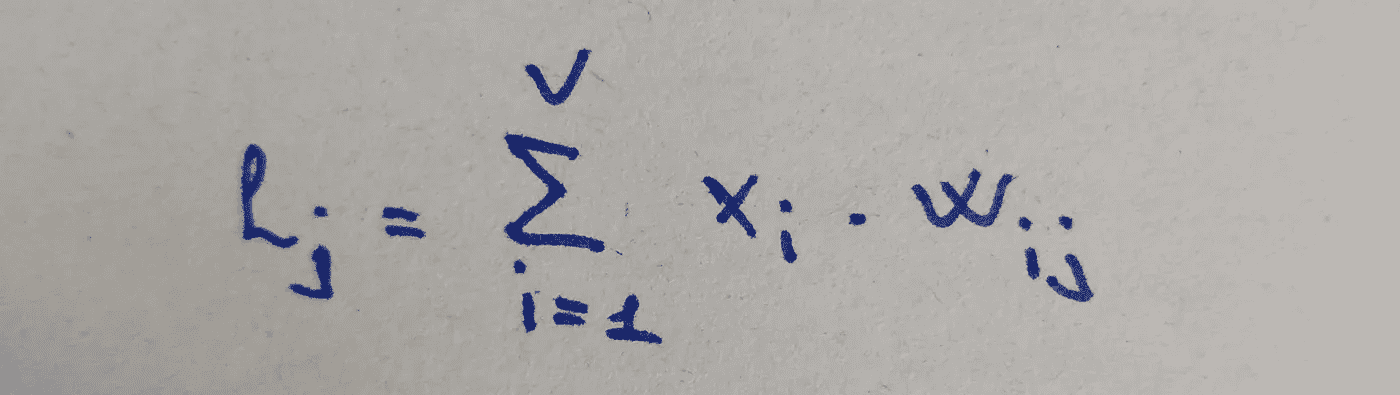 h_j = \sum_{i=1}^{V} x_i \cdot w_{ij}